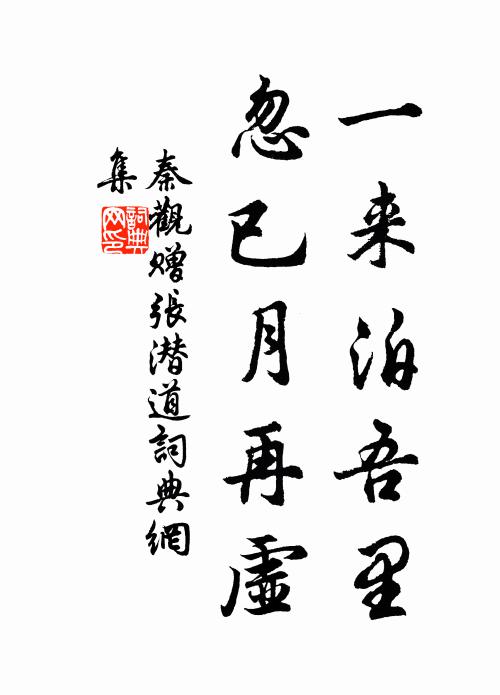 一来泊吾里
忽已月再虚
秦觀贈張潜道詞典網
集
詞典
网印